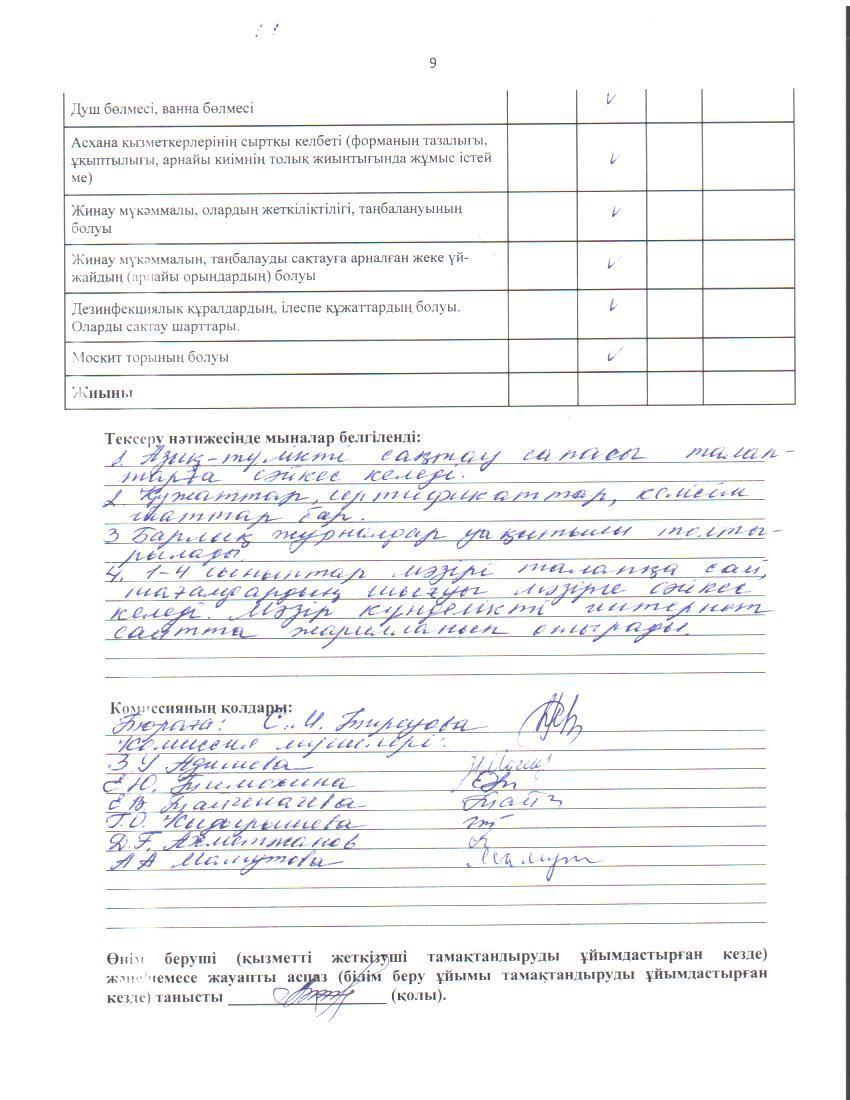 9
Душ бөлмесі, ванна бөлмесі
Асхана қызметкерлерінің сыртқы келбеті (форманың тазалығы,
ұқыптылығы, арнайы киімнің толық жиынтығында жұмыс істей
ме)
Жинау мүкәммалы, олардың жеткіліктілігі, таңбалануының
болуы
Жинау мүкәммалын, таңбалауды сақтауға арналған жеке үй-
жайдың (арнайы орындардың) болуы
Дезинфекциялық құралдардың, ілеспе құжаттардың болуы.
Оларды сақтау шарттары.
Москит торының болуы
Жиыны
Тексеру нәтижесінде мыналар белгіленді:
1. Азық-түлікті сақтау сапасы талап-
тарға сәйкес келеді.
2 Құжаттар, сертификаттар, келісім
шаттар бар.
3 Барлық журналдар уақытылы толты-
рылады.
4. 1-4 сыныптар мәзірі талапқа сай,
тағамдардың шығуы мәзірге сәйкес
келеді. Мәзір күнделікті интернет
сайтта жарияланып отырады.
Комиссияның қолдары:
Төраға: С.И.
Комиссия мүшелері:
З У Адилова
Е Ю, Тимохина
Е В
Г.О.
Д.Г, Ахметжанов
А А Мамутова
Өнім беруші (қызметті жеткізуші тамақтандыруды ұйымдастырған кезде)
және/немесе жауапты аспаз (білім беру ұйымы тамақтандыруды ұйымдастырған
кезде) танысты (қолы).